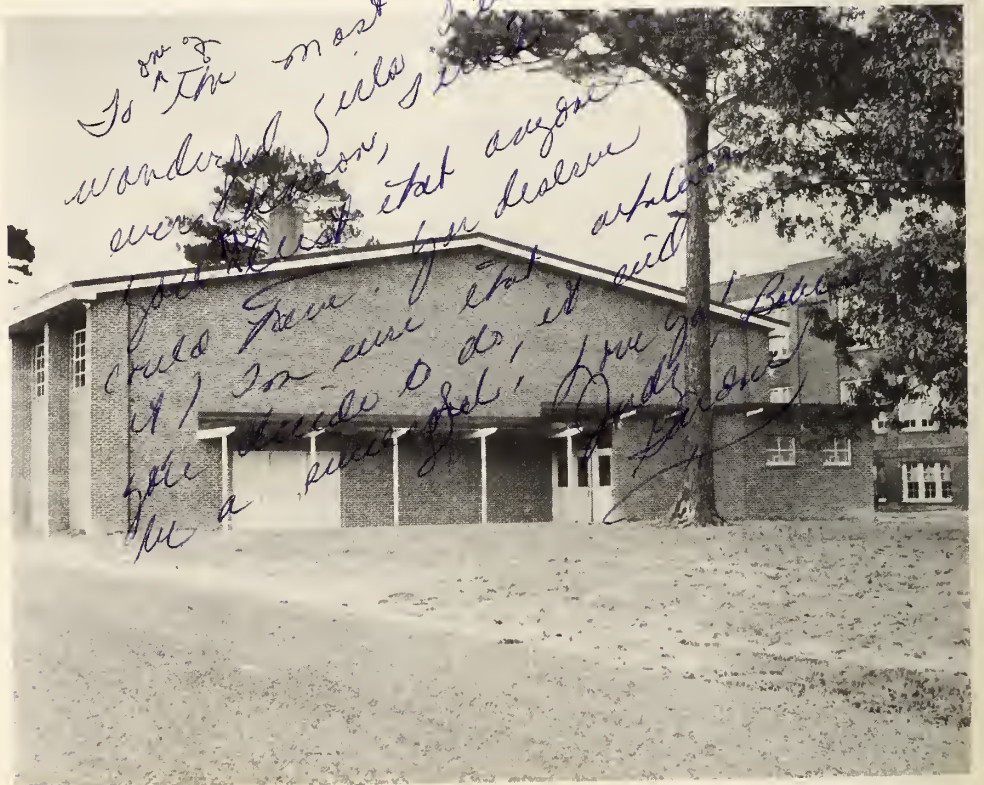 To one of the most
wonderful girls I've
ever known,
the best that anyone
could have. You deserve
it! I'm sure that whatever
you decide to do, it will
be a success. Love you, 
Judy